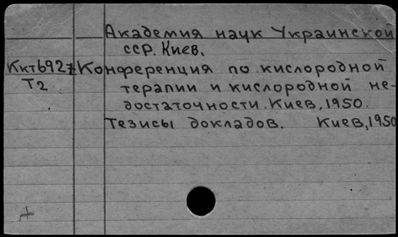 Академия наук Украинской
ССР. Киев.
Ккт6927 Конференция по кислородной
Т2 терапии и кислородной не-
достаточности. Киев, 1950.
Тезисы докладов. Киев, 1950